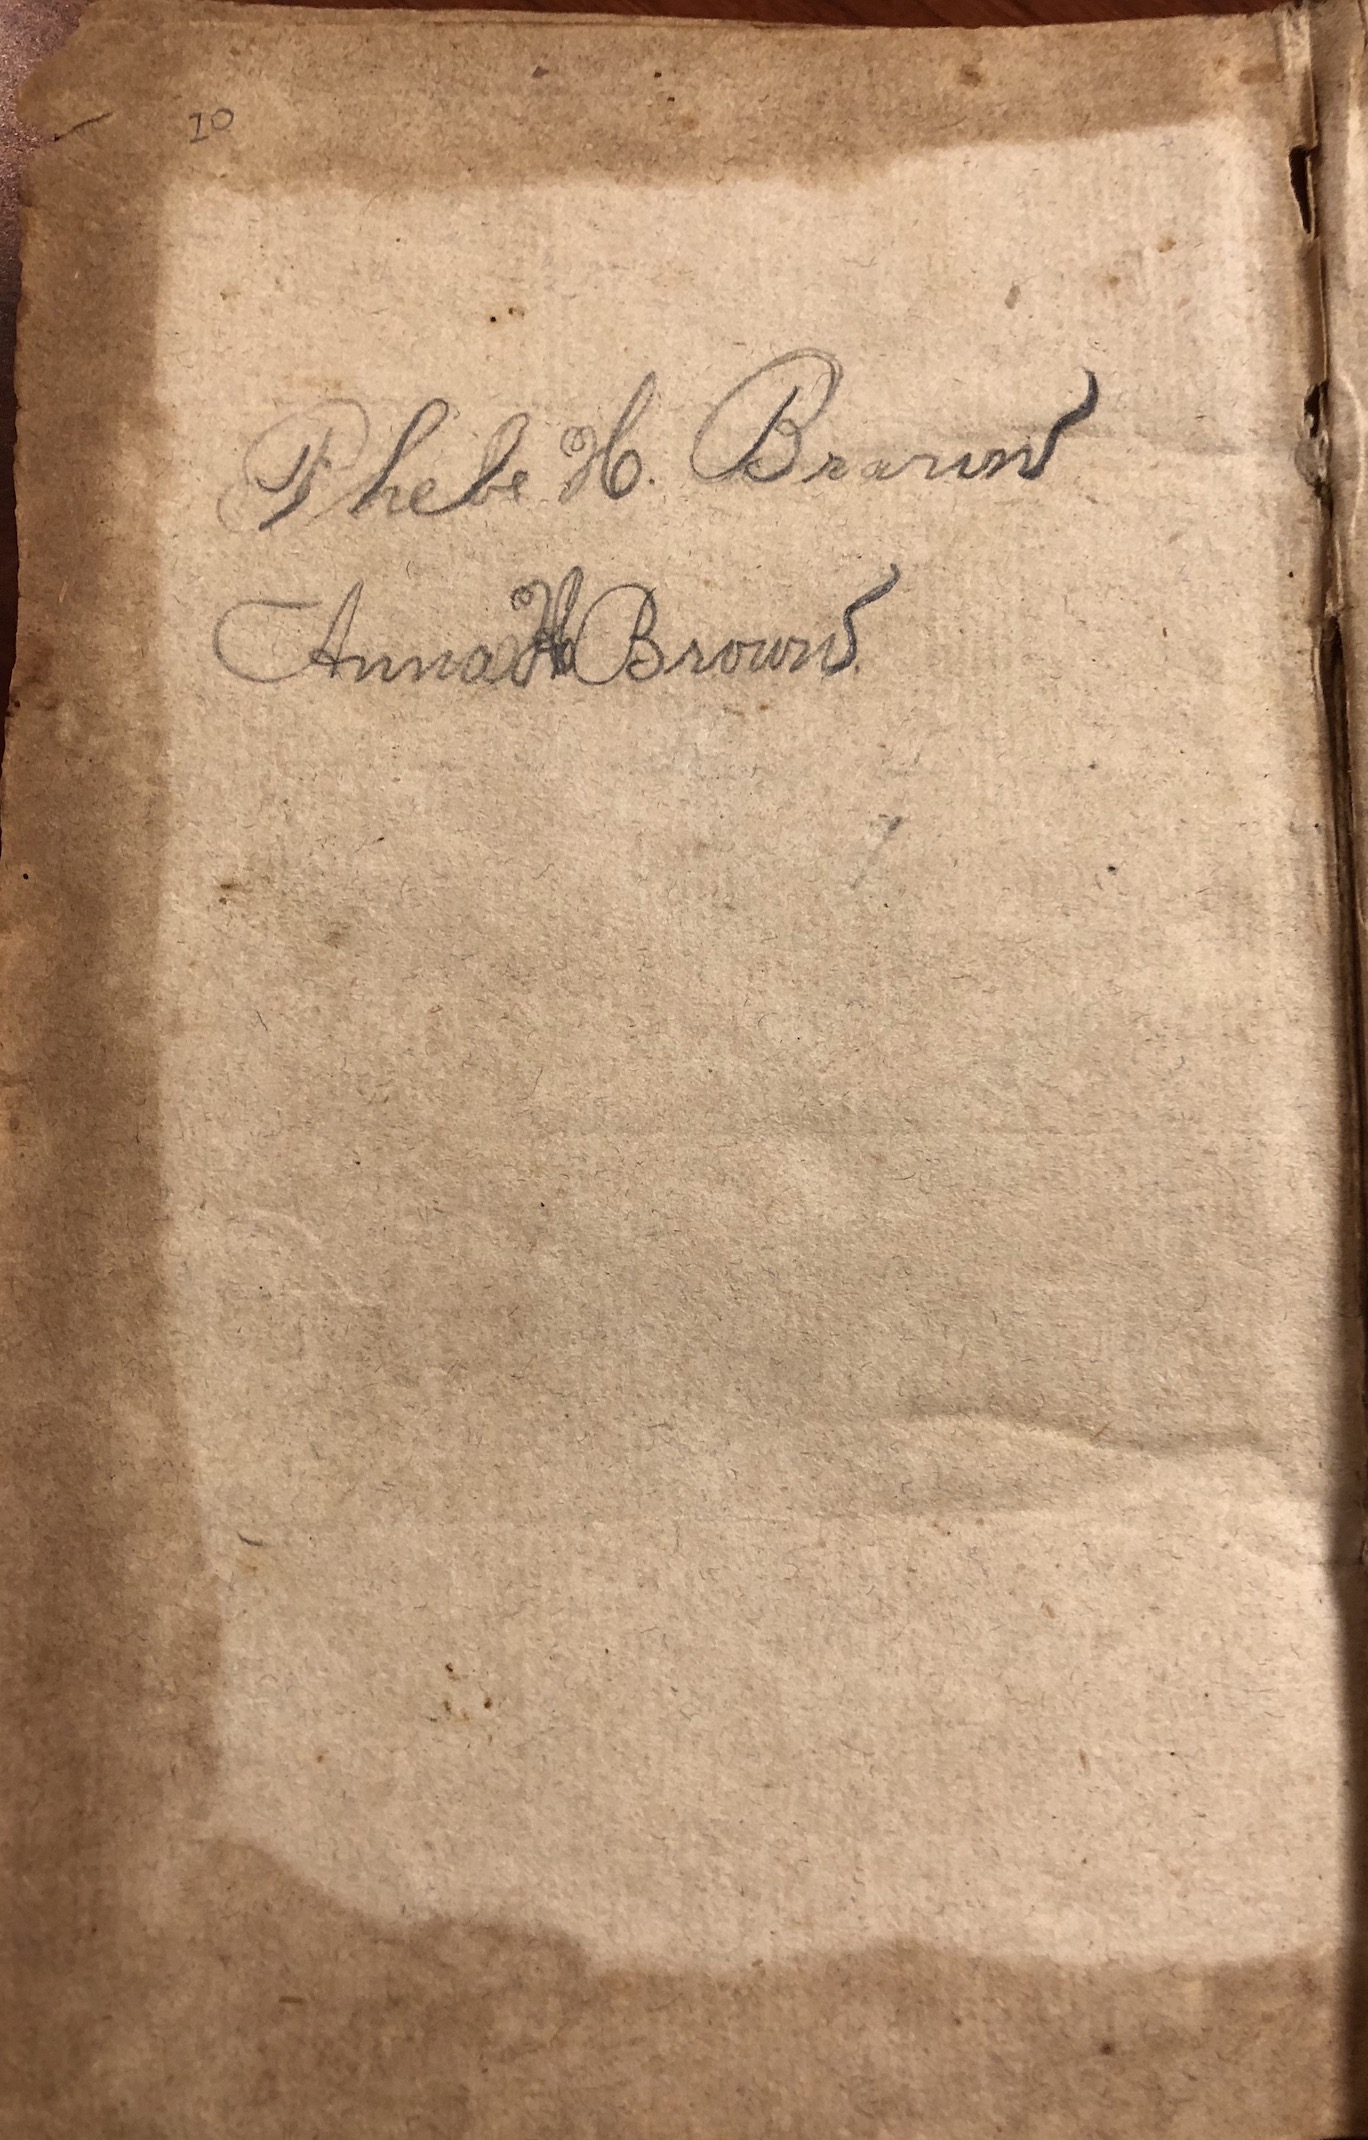 10
Phebe H. Brown
Anna H Brown.